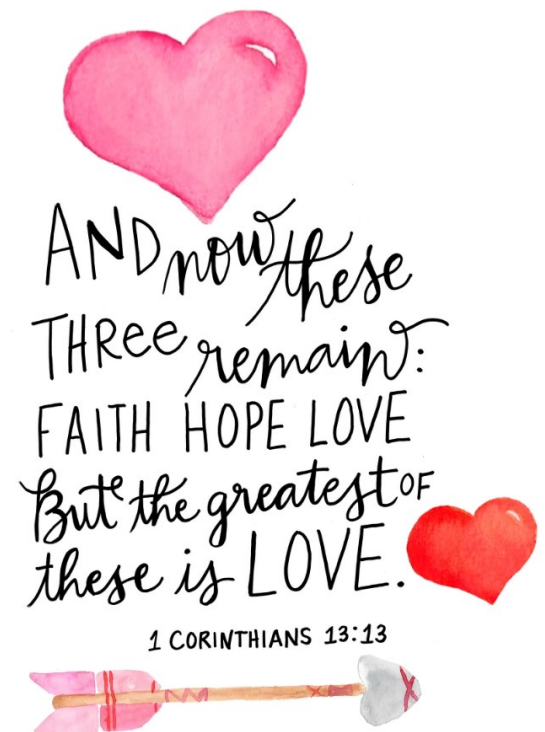 AND now these
THREE remain:
FAITH HOPE LOVE
But the greatest OF
these is LOVE.
1 CORINTHIANS 13:13